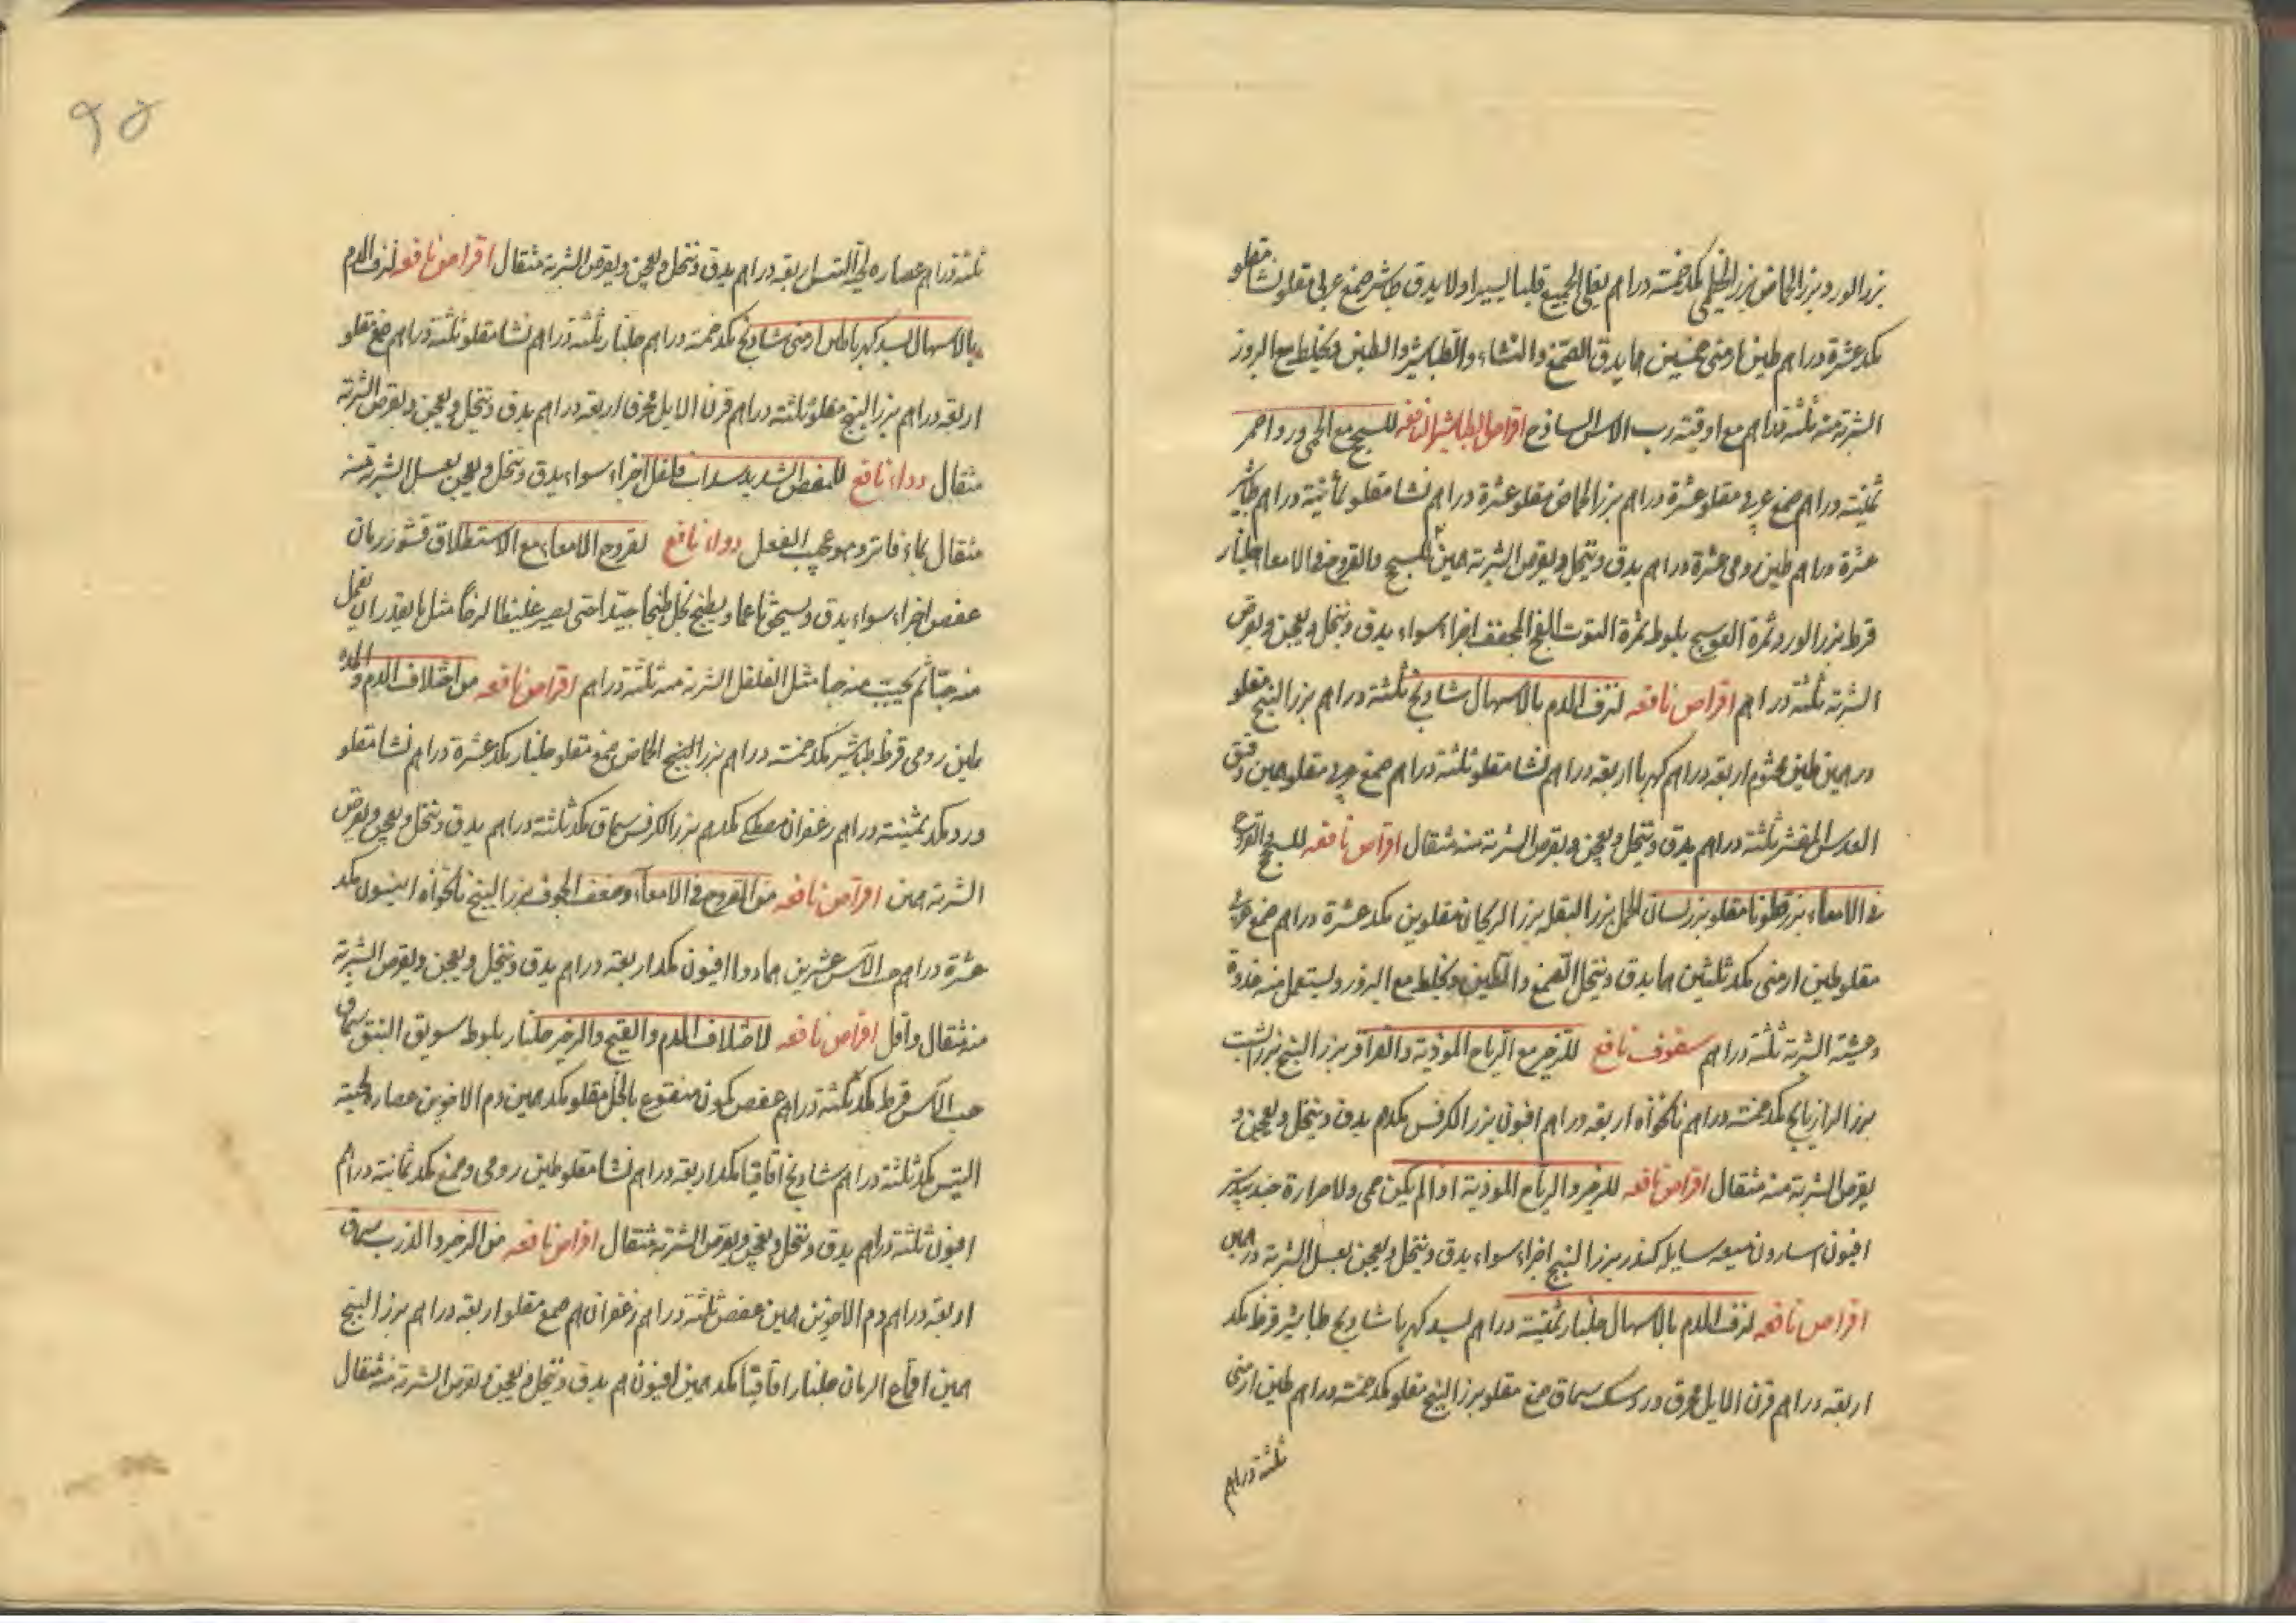 بزر الورد بزر الحماض بزر الخطمى مكد خمسة دراهم يقلى الجميع قليا يسيرا ولا يدق طباشير صمغ عربى مقلو نشا مقلو
مكد عشرة دراهم طين ارمنى خمسين درهما يدق الصمغ والنشاء والطباشير والطين ويخلط مع البزور
الشربة منه ثلثة دراهم مع اوقية رب الاس الساذج اقراص الطباشير النافعه للسحج مع الحمى ورد احمر
ثمنية دراهم صمغ عربى مقلو عشرة دراهم بزر الحماض مقلو عشرة دراهم نشا مقلو ثمانية دراهم طباشير
عشرة دراهم طين رومى عشرة دراهم يدق وينخل ويقرص الشربة درهمين للسحج والقروح فى الامعا جلنار
قرط بزر الورد ثمرة العوسج بلوط ثمرة التوت الفج المجفف اجزاء سواء يدق وينخل ويعجن ويقرص
الشربة ثلثة دراهم اقراص نافعه لنزف الدم بالاسهال شادنج ثلثة دراهم بزر البنج مقلو
درهمين طين مختوم اربعه دراهم كهربا اربعه دراهم نشا مقلو ثلثة دراهم صمغ عربى مقلو درهمين دقيق
العدس المقشر ثلثة دراهم يدق وينخل ويعجن ويقرص الشربة منه مثقال اقراص نافعه للسحج والقروح
فى الامعاء بزر قطونا مقلو بزر لسان الحمل بزر البقله بزر الريحان مقلوين مكد عشرة دراهم صمغ عربى
مقلو طين ارمنى مكد ثلثين درهما يدق وينخل الصمغ والطين ويخلط مع البزور ويستعمل منه غدوة
وعشية الشربة ثلثة دراهم سفوف نافع للزحير مع الرياح الموذية والقراقر بزر البنج بزر الشبت
بزر الرازيانج مكد خمسة دراهم نانخواه اربعه دراهم افيون بزر الكرفس مكدرهم يدق وينخل ويعجن و
يقرص الشربة منه مثقال اقراص نافعه للزحير والرياح الموذية اذا لم يكن حمى ولا حرارة جندبيدستر
افيون اسارون ميعه سايله كندر بزر البنج اجزاء سواء يدق وينخل ويعجن بعسل الشربة درهمين
اقراص نافعه لنزف الدم بالاسهال جلنار ثمنية دراهم بسد كهربا شادنج طباشير قرظ مكد
اربعه دراهم قرن الايل محرق ورد سك سماق صمغ مقلو بزر البنج مقلو مكد خمسة دراهم طين ارمنى
ثلثة دراهم
۹۵
ثلثة دراهم عصاره لحية التيس اربعه دراهم يدق وينخل ويعجن ويقرص الشربة مثقال اقراص نافعه لنزف الدم
بالاسهال بسد كهربا طين ارمنى شادنج مكد خمسة دراهم جلنار ثلثة دراهم نشا مقلو ثلثة دراهم صمغ مقلو
اربعه دراهم بزر البنج مقلو ثلثة دراهم قرن الايل محرق اربعه دراهم يدق وينخل ويعجن ويقرص الشربة
مثقال دواء نافع للمغص الشديد سداب فلفل اجزاء سواء يدق وينخل ويعجن بعسل الشربة منه
مثقال بماء فاتر وهو عجيب الفعل دواء نافع لقروح الامعاء مع الاستطلاق قشور رمان
عفص اجزاء سواء يدق ويسحق ناعما ويطبخ بخل طبخا جيدا حتى يصير غليظا لزجا مثل ما يقدر ان يعمل
منه حبا ثم يحبب منه حبا مثل الفلفل الشربة منه ثلثة دراهم اقراص نافعه من اختلاف الدم والمده
طين رومى قرظ طباشير مكد خمسة دراهم بزر البنج الحماض صمغ مقلو جلنار مكد عشرة دراهم نشا مقلو
ورد مكد ثمنية دراهم زعفران مصطكى مكدرهم بزر الكرفس سماق مكد ثلثة دراهم يدق وينخل ويعجن ويقرص
الشربة درهمين اقراص نافعه من القروح فى الامعاء وضعف الجوف بزر البنج نانخواه انيسون مكد
عشرة دراهم حب الآس عشرين درهما دوا افيون مكد اربعه دراهم يدق وينخل ويعجن ويقرص الشربة
منه مثقال واقل اقراص نافعه لاختلاف الدم والقيح والزحير جلنار بلوط سويق النبق سماق
حب الآس قرط مكد ثلثة دراهم عفص كمون منقوع بالخل مقلو مكد درهمين دم الاخوين عصاره لحية
التيس مكد ثلثة دراهم شادنج اقاقيا مكد اربعه دراهم نشا مقلو طين رومى وصمغ مكد ثمانية دراهم
افيون ثلثة دراهم يدق وينخل ويعجن ويقرص الشربة مثقال اقراص نافعه من الزحير والذرب سماق
اربعه دراهم دم الاخوين درهمين عفص ثلثة دراهم زعفران درهم صمغ مقلو اربعه دراهم بزر البنج
درهمين اقماع الرمان جلنار اقاقيا مكد درهمين افيون درهم يدق وينخل ويعجن ويقرص الشربة منه مثقال